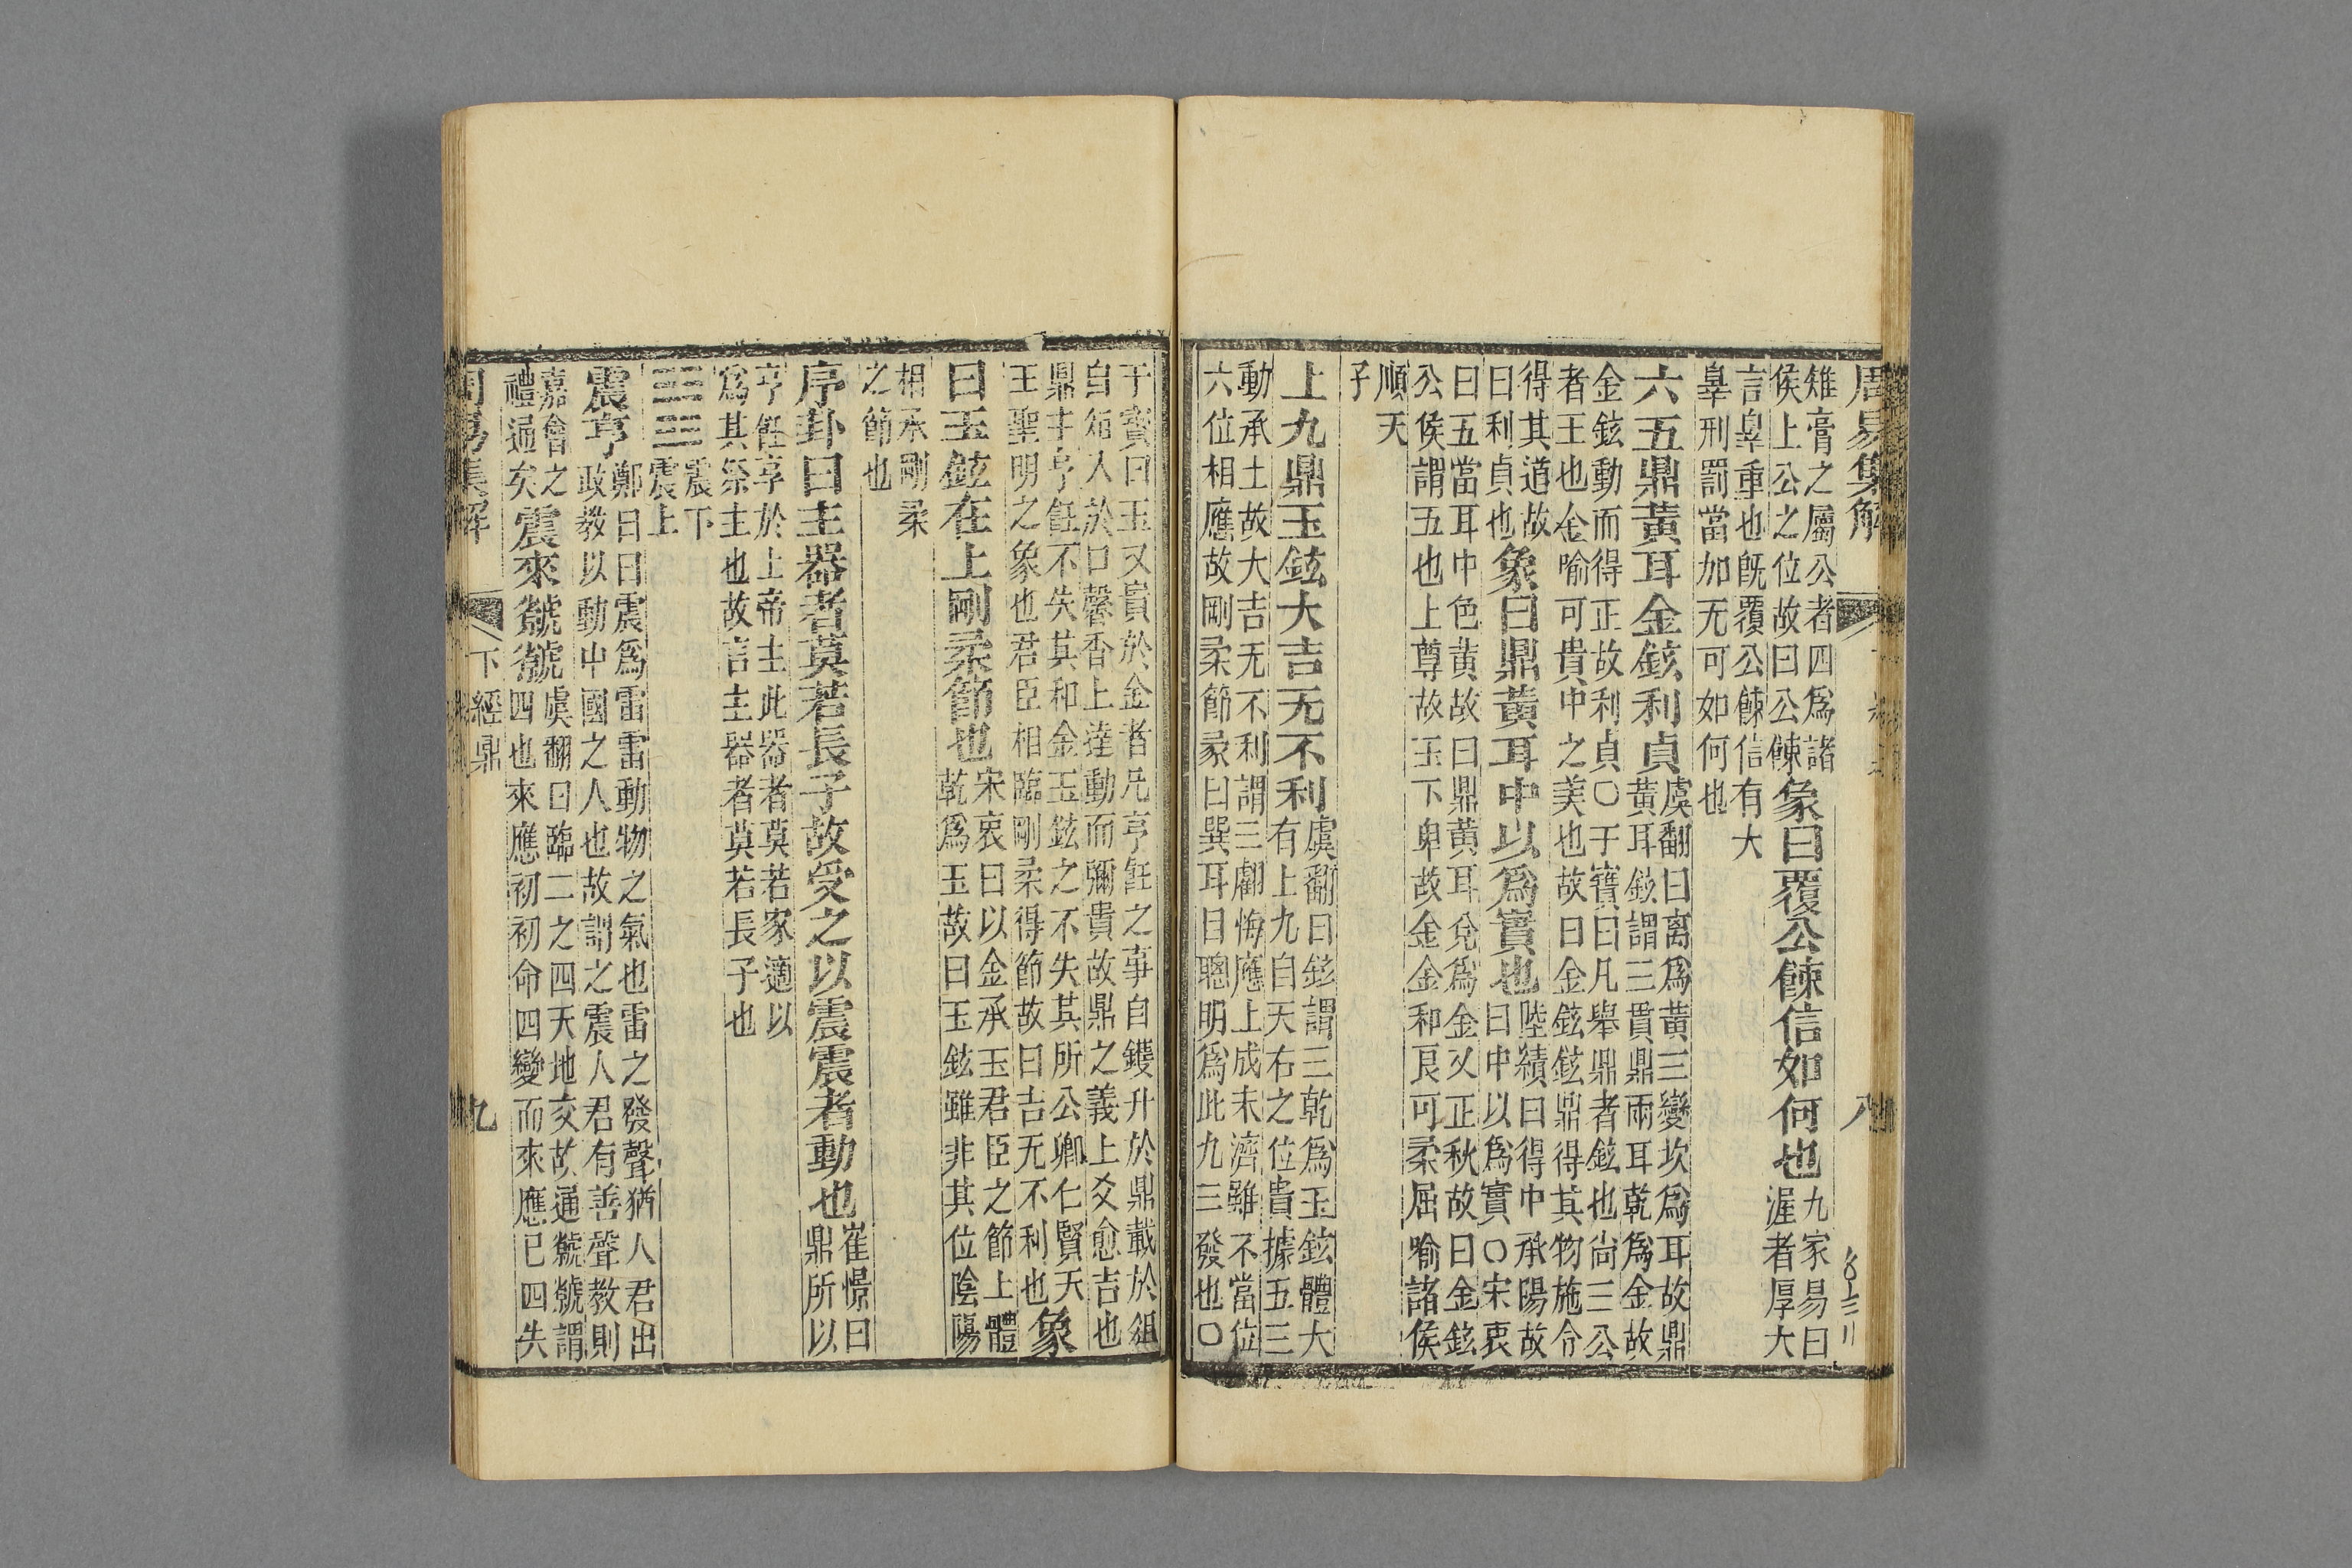 周易集解
八
雉膏之屬公者四爲諸
侯上公之位故曰公餗
象曰覆公餗信如何也
九家易曰
渥者厚大
言辠重也旣覆公餗信有大
辠刑罰當加无可如何也
六五鼎黃耳金鉉利貞
虞翻曰離爲黃三變坎爲耳故鼎
黃耳鉉謂三貫鼎兩耳乾爲金故
金鉉動而得正故利貞〇干寶曰凡舉鼎者鉉也尙三公
者王也金喻可貴中之美也故曰金鉉鉉鼎得其物施令
得其道故
曰利貞也
象曰鼎黃耳中以爲實也
陸績曰得中承陽故
曰中以爲實〇宋衷
曰五當耳中色黃故曰鼎黃耳兌爲金又正秋故曰金鉉
公侯謂五也上尊故玉下卑故金金和良可柔屈喻諸侯
順天
子
上九鼎玉鉉大吉无不利
虞翻曰鉉謂三乾爲玉鉉體大
有上九自天右之位貴據五三
動承土故大吉无不利謂三虧悔應上成未濟雖不當位
六位相應故剛柔節彖曰巽耳目聰明爲此九三發也〇
干寶曰玉又貴於金者凡亨飪之事自鑊升於鼎載於俎
自俎入於口馨香上達動而彌貴故鼎之義上爻愈吉也
鼎主亨飪不失其和金玉鉉之不失其所公卿仁賢天
王聖明之象也君臣相臨剛柔得節故曰吉无不利也
象
曰玉鉉在上剛柔節也
宋衷曰以金承玉君臣之節上體
乾爲玉故曰玉鉉雖非其位陰陽
相承剛柔
之節也
序卦曰主器者莫若長子故受之以震震者動也
崔憬曰
鼎所以
亨飪享於上帝主此器者莫若家適以
爲其祭主也故言主器者莫若長子也
震下
震上
震亨
鄭曰曰震爲雷雷動物之氣也雷之發聲猶人君出
政教以動中國之人也故謂之震人君有善聲教則
嘉會之
禮通矣
震來虩虩
虞翻曰臨二之四天地交故通虩虩謂
四也來應初初命四變而來應己四失
周易集解
下經 鼎
九